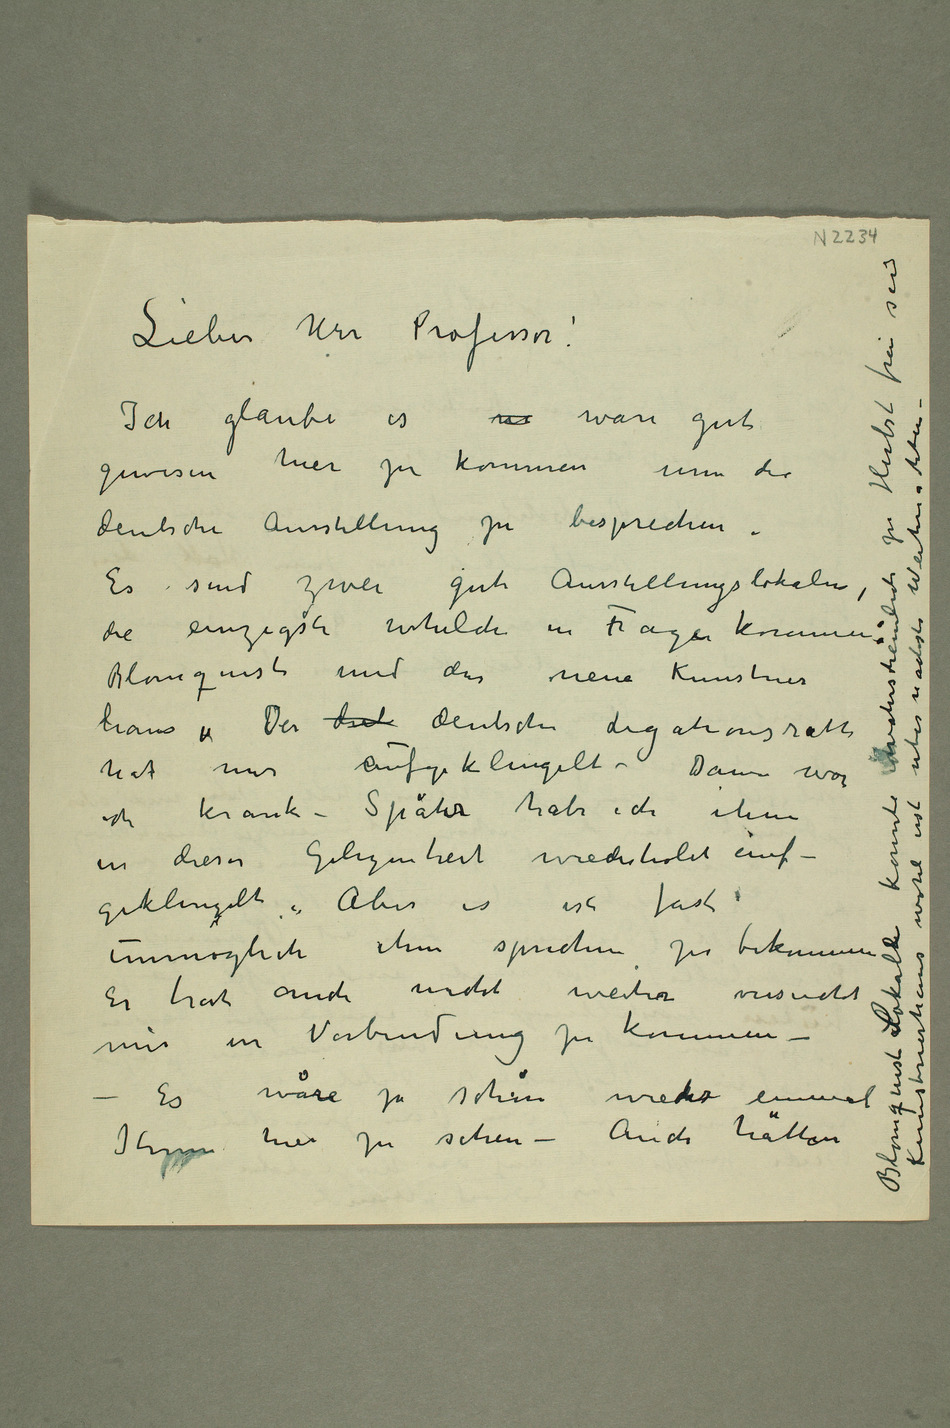 N 2234
Lieber Herr Professor!
Ich glaube es wäre gut
gewesen hier zu kommen um die
deutsche Ausstellung zu besprechen.
Es sind zwei gute Ausstellungslokalen,
die einzigste whelche in Frage kommen:
Blomquist und das neue Kunstner
haus. Der deutsche Legationsratt
hat mir aufgeklingelt – Dann war
ich krank – Später habe ich ihm
in dieser Gelegentheit wiederholet auf–
geklingelt. Aber es ist fast
unmöglich ihm sprechen zu bekommen
Er hat auch nicht weiter versucht
mir in Verbindung zu kommen –
– Es wäre ja schön wieder einmal
Ihnen hier zu sehen – Auch hätten
Blomquist Lokale konnte wahrscheinlich zu Herbst frei sein
Kunstnerhaus wohl erst über nächste Weihnachten –